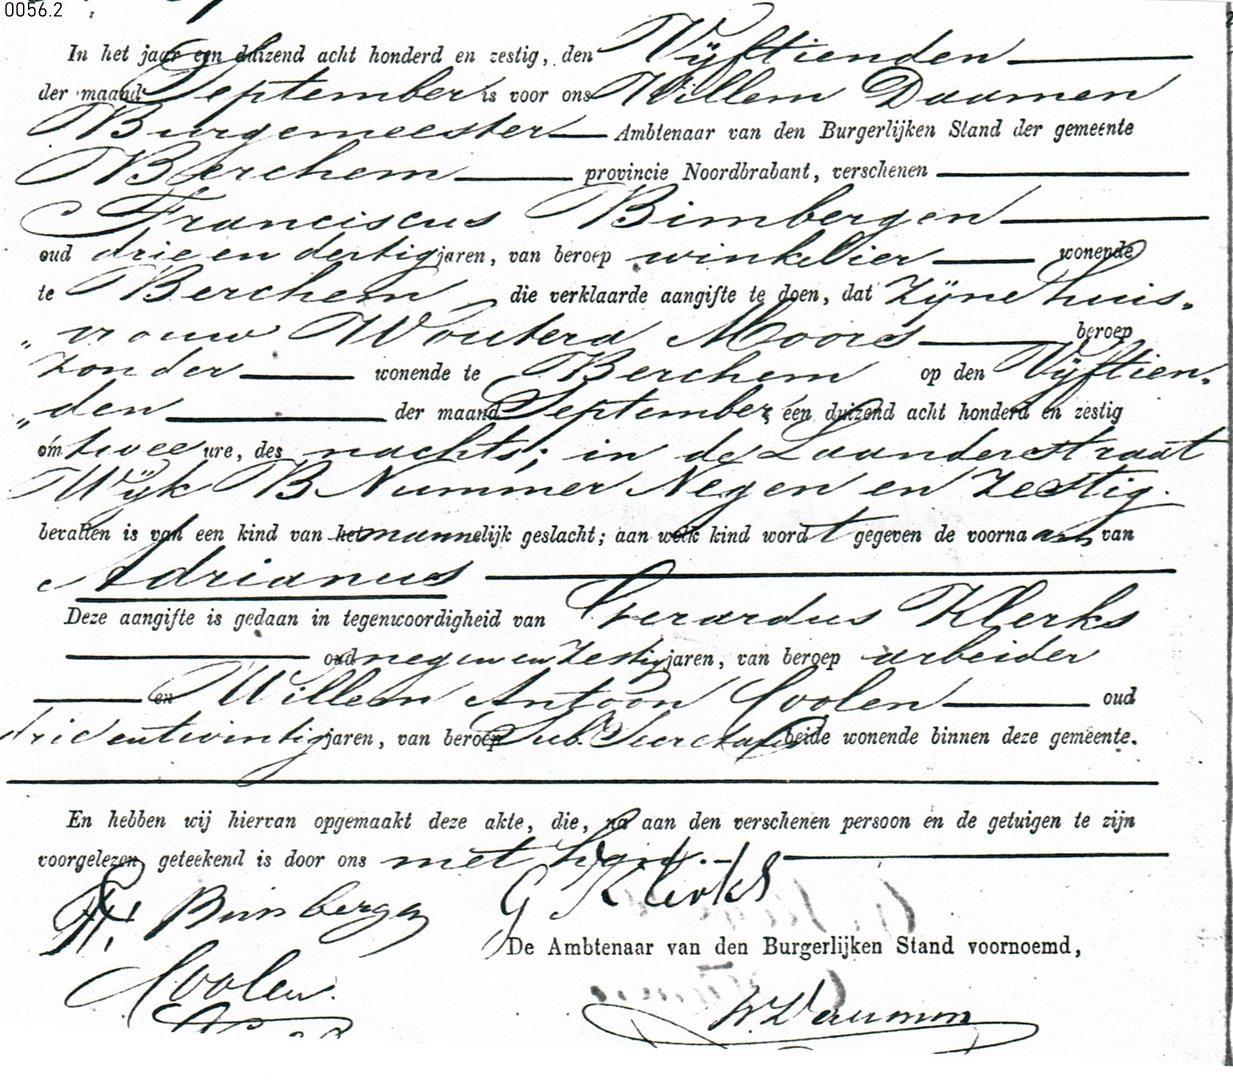 0056.2
In het jaar een duizend acht honderd en zestig, den Vijftienden
der maand September is voor ons Willem Daamen
Burgemeester Ambtenaar van den Burgerlijken Stand der gemeente
Berchem provincie Noordbrabant, verschenen
Franciscus Bimbergen
oud drie en dertig jaren, van beroep winkelier wonende
te Berchem, die verklaarde aangifte te doen, dat Zijne huis„
„vrouw Woutera Moors beroep
Zonder wonende te Berchem op den Vijftien„
„den der maand September een duizend acht honderd en zestig
om twee ure, des nachts; in de Laanderstraat
Wijk B Nummer Negen en Zestig.
bevallen is van een kind van het mannelijk geslacht; aan welk kind wordt gegeven de voornaam van
Adrianus
Deze aangifte is gedaan in tegenwoordigheid van Gerardus Klerks
oud negen en Zestig jaren, van beroep arbeider
en Willem Antoon Coolen oud
drie en twintig jaren, van beroep Sub. Secretaris beide wonende binnen deze gemeente.
En hebben wij hiervan opgemaakt deze akte, die, na aan den verschenen persoon en de getuigen te zijn
voorgelezen geteekend is door ons met hen.
Fr. Bimbergen G Klerks
De Ambtenaar van den Burgerlijken Stand voornoemd,
Coolen.
W. Daamen